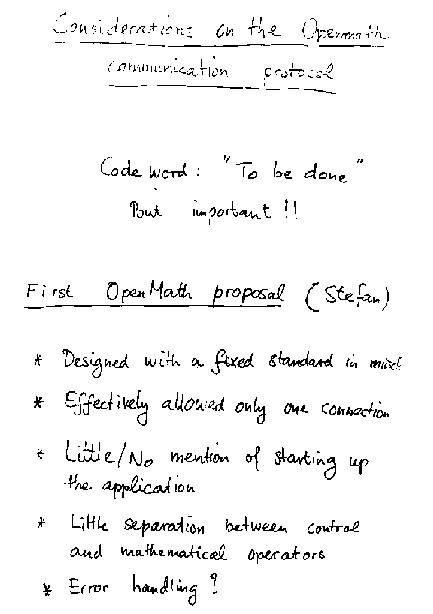 Considerations on the Openmath
communication protocol
Code word: "To be done"
But important!!
First OpenMath proposal (Stefan)
* Designed with a fixed standard in mind
* Effectively allowed only one connection
* Little/No mention of starting up
the application
* Little separation between control
and mathematical operators
* Error handling?